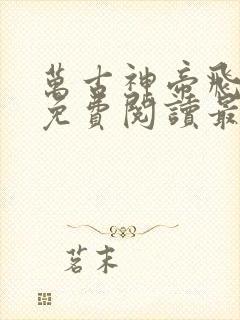 萬古神帝飛
免費閱讀最
茗末